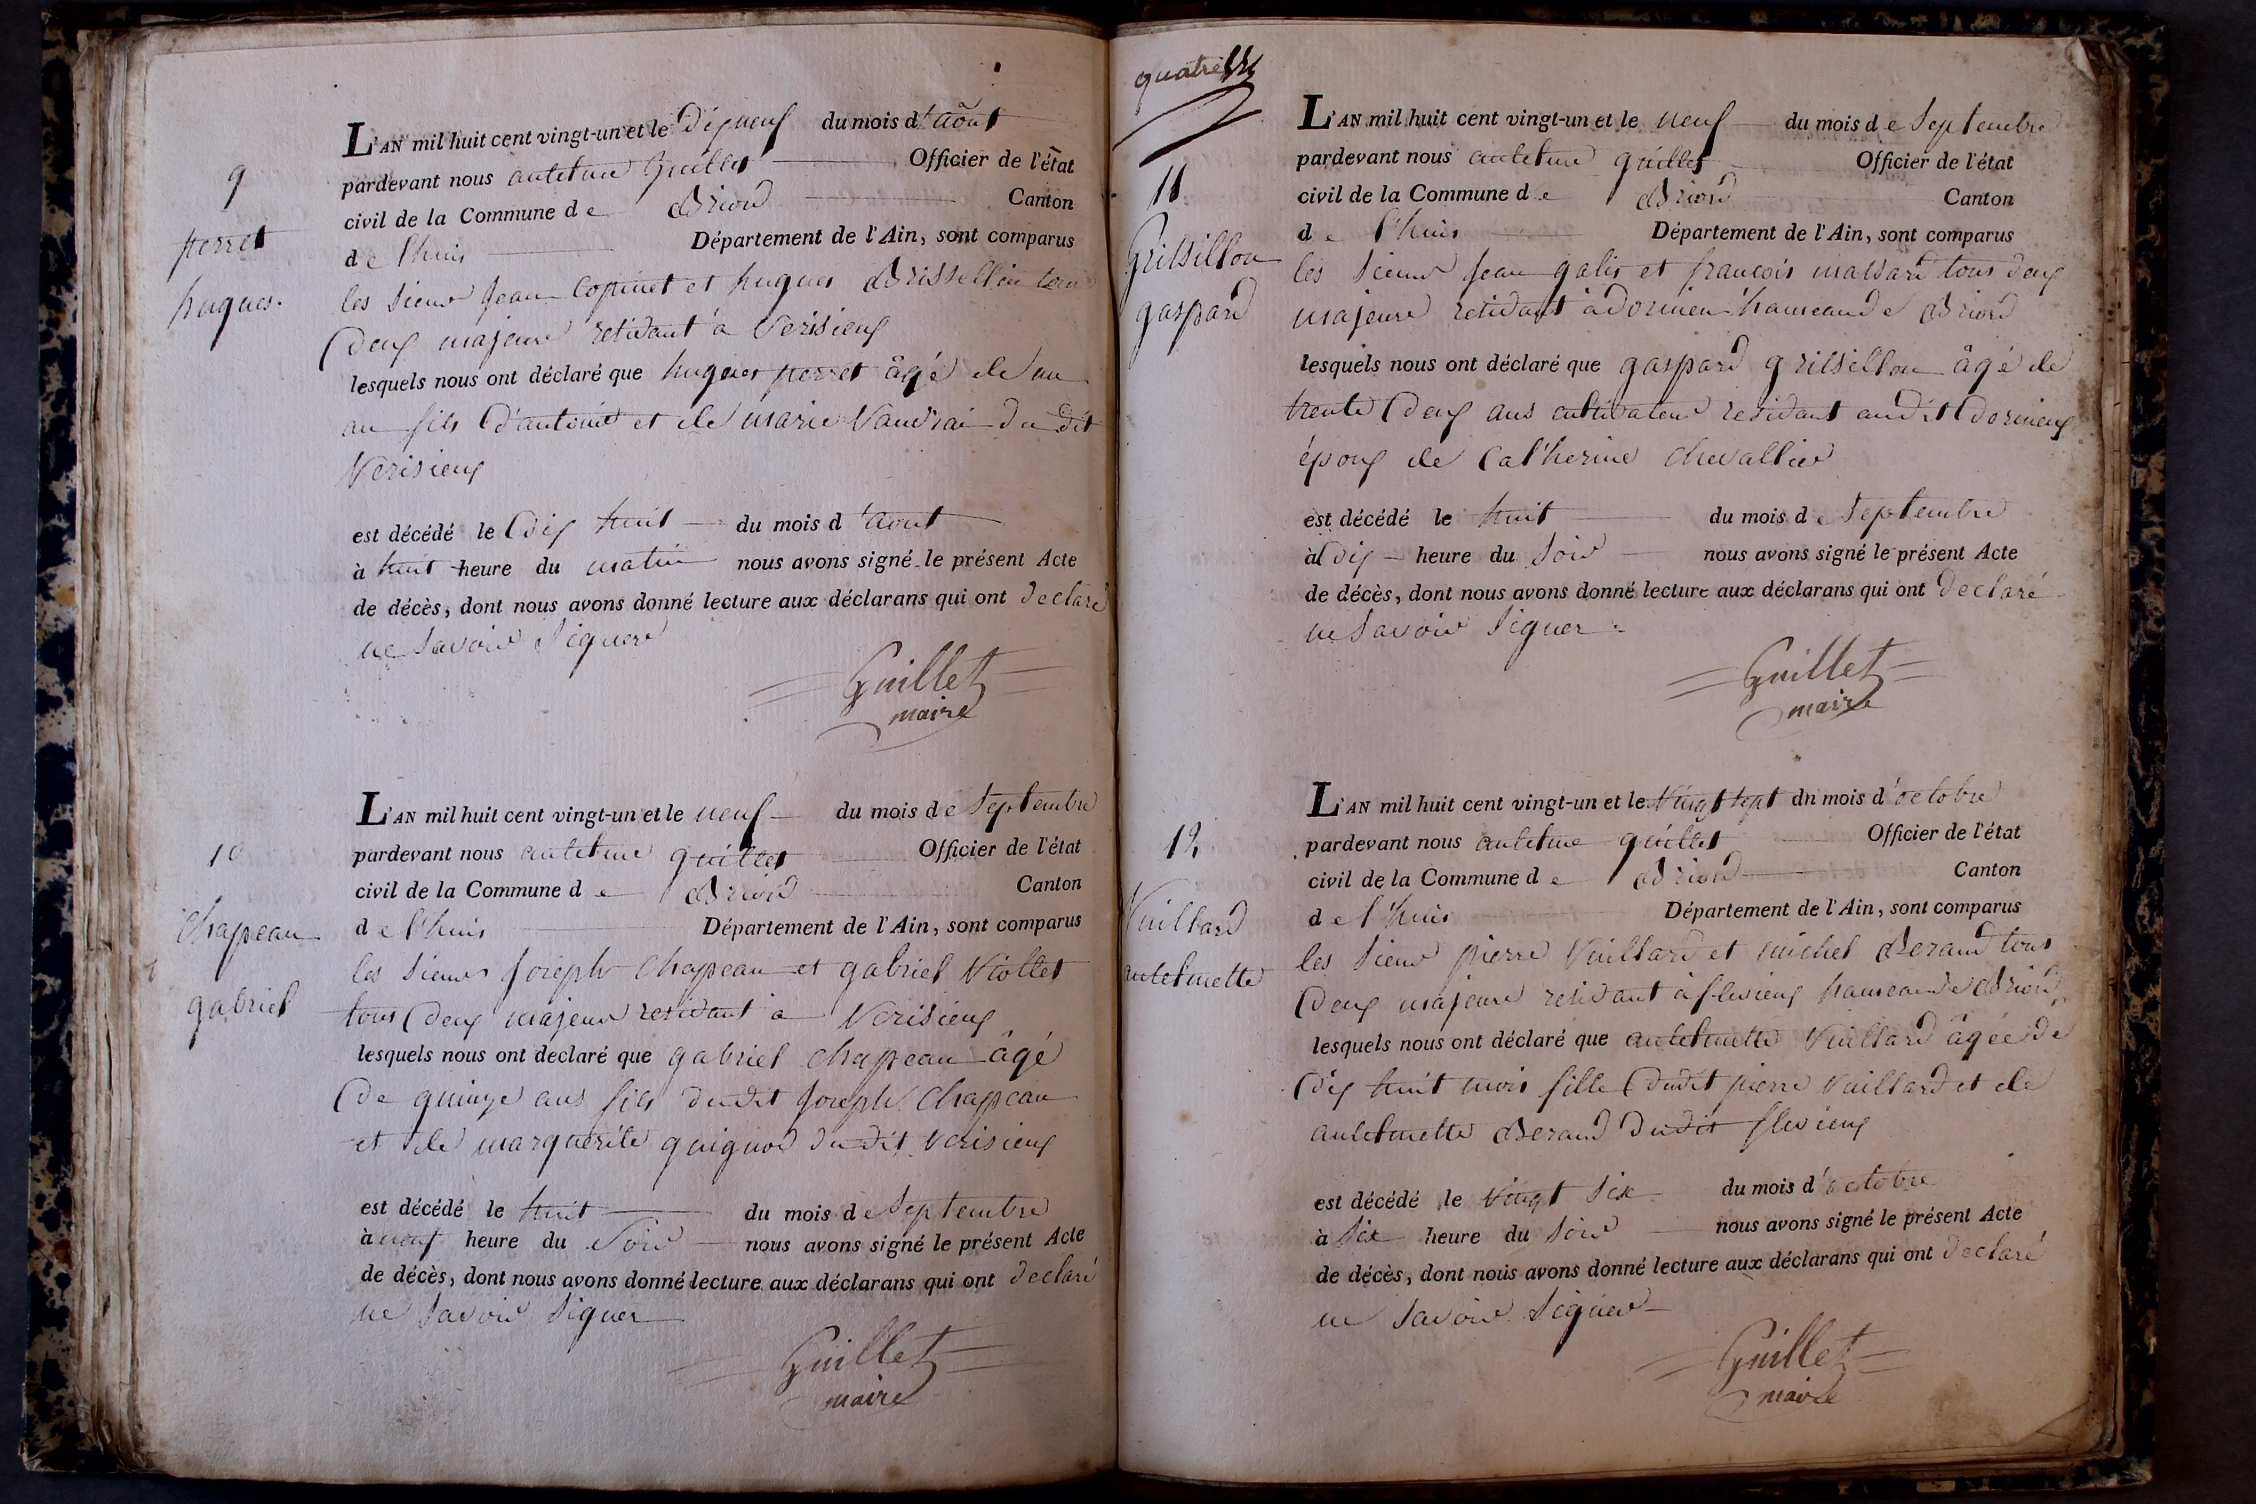 9
perret
hugues.
L'AN mil huit cent vingt-un et le dixneuf du mois d'août
pardevant nous antelme guillet Officier de l'état
civil de la Commune de Briord Canton
de lhuis Département de l'Ain, sont comparus
les sieurs jean Copinet et hugues Brissellin tous
deux majeurs residant a Verisieux
lesquels nous ont déclaré que hugues perret âgé de un
an fils d'antoine et de marie Vaudrai du dit
Verisieux
est décédé le dix huit du mois d'aout
à huit heure du matin nous avons signé le présent Acte
de décès, dont nous avons donné lecture aux déclarans qui ont declaré
ne savoir signer
Guillet
maire
10
Chapeau
gabriel
L'AN mil huit cent vingt-un et le neuf du mois de septembre
pardevant nous antelme guillet Officier de l'état
civil de la Commune de Briord Canton
de lhuis Département de l'Ain, sont comparus
les sieurs joseph Chapeau et gabriel Viollet
tous deux majeur residant a Verisieux
lesquels nous ont declaré que gabriel chapeau âgé
de quinze ans fils dudit joseph Chapeau
et de marguerite guignod dudit Verisieux
est décédé le huit du mois de septembre
à neuf heure du soir nous avons signé le présent Acte
de décès, dont nous avons donné lecture aux déclarans qui ont declaré
ne savoir signer
Guillet
maire
quatre
11
Grissillon
gaspard
L'AN mil huit cent vingt-un et le neuf du mois de septembre
pardevant nous antelme guillet Officier de l'état
civil de la Commune de Briord Canton
de lhuis Département de l'Ain, sont comparus
les sieurs jean galis et françois massard tous deux
majeurs residant à dornieu hameau de Briord
lesquels nous ont déclaré que gaspard grissillon âgé de
trente deux ans cultivateur residant audit dornieux
époux de Catherine Chevallier
est décédé le huit du mois de septembre
à dix heure du soir nous avons signé le présent Acte
de décès, dont nous avons donné lecture aux déclarans qui ont declaré
ne savoir signer
Guillet
maire
12
Vuillard
antelmette
L'AN mil huit cent vingt-un et le Vingt sept dn mois d'octobre
pardevant nous antelme guillet Officier de l'état
civil de la Commune de Briord Canton
de lhuis Département de l'Ain, sont comparus
les sieurs pierre Vuillard et michel Beraud tous
deux majeurs residant à flevieux hameau de Briord
lesquels nous ont déclaré que antelmette Vuillard âgée de
dix huit mois fille dudit pierre Vuillard et de
antelmette Beraud dudit flevieux
est décédé le Vingt six du mois d'octobre
à six heure du soir nous avons signé le présent Acte
de décès, dont nous avons donné lecture aux déclarans qui ont declaré
ne savoir signer
Guillet
maire